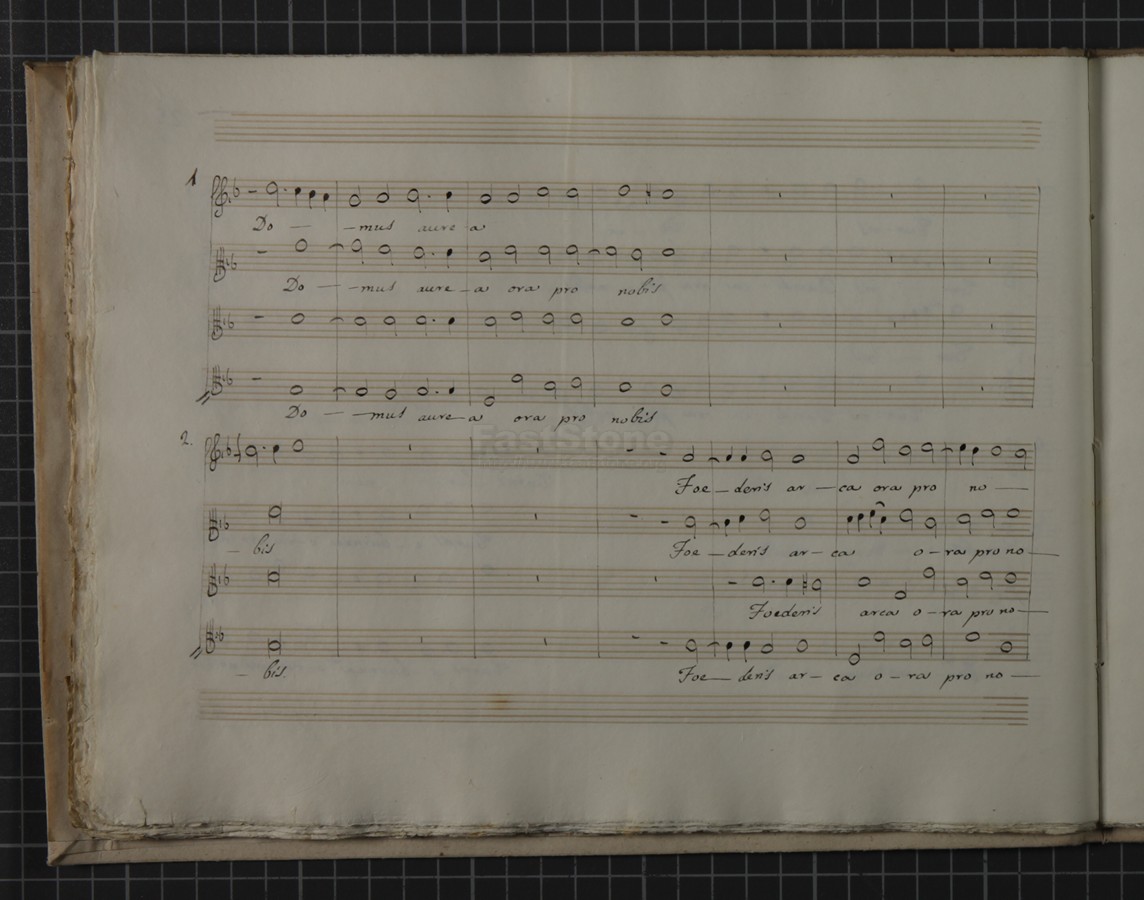 1
Do — — mus aure-a
Do — — mus aure — a ora pro nobis
Do — — mus aure — a ora pro nobis
2.
Foe — deris ar — ca ora pro no —
— bis Foe — deris ar — ca o — ra pro no —
Foederis arca o — ra pro no —
— bis. Foe — deris ar — ca o — ra pro no —
FastStone